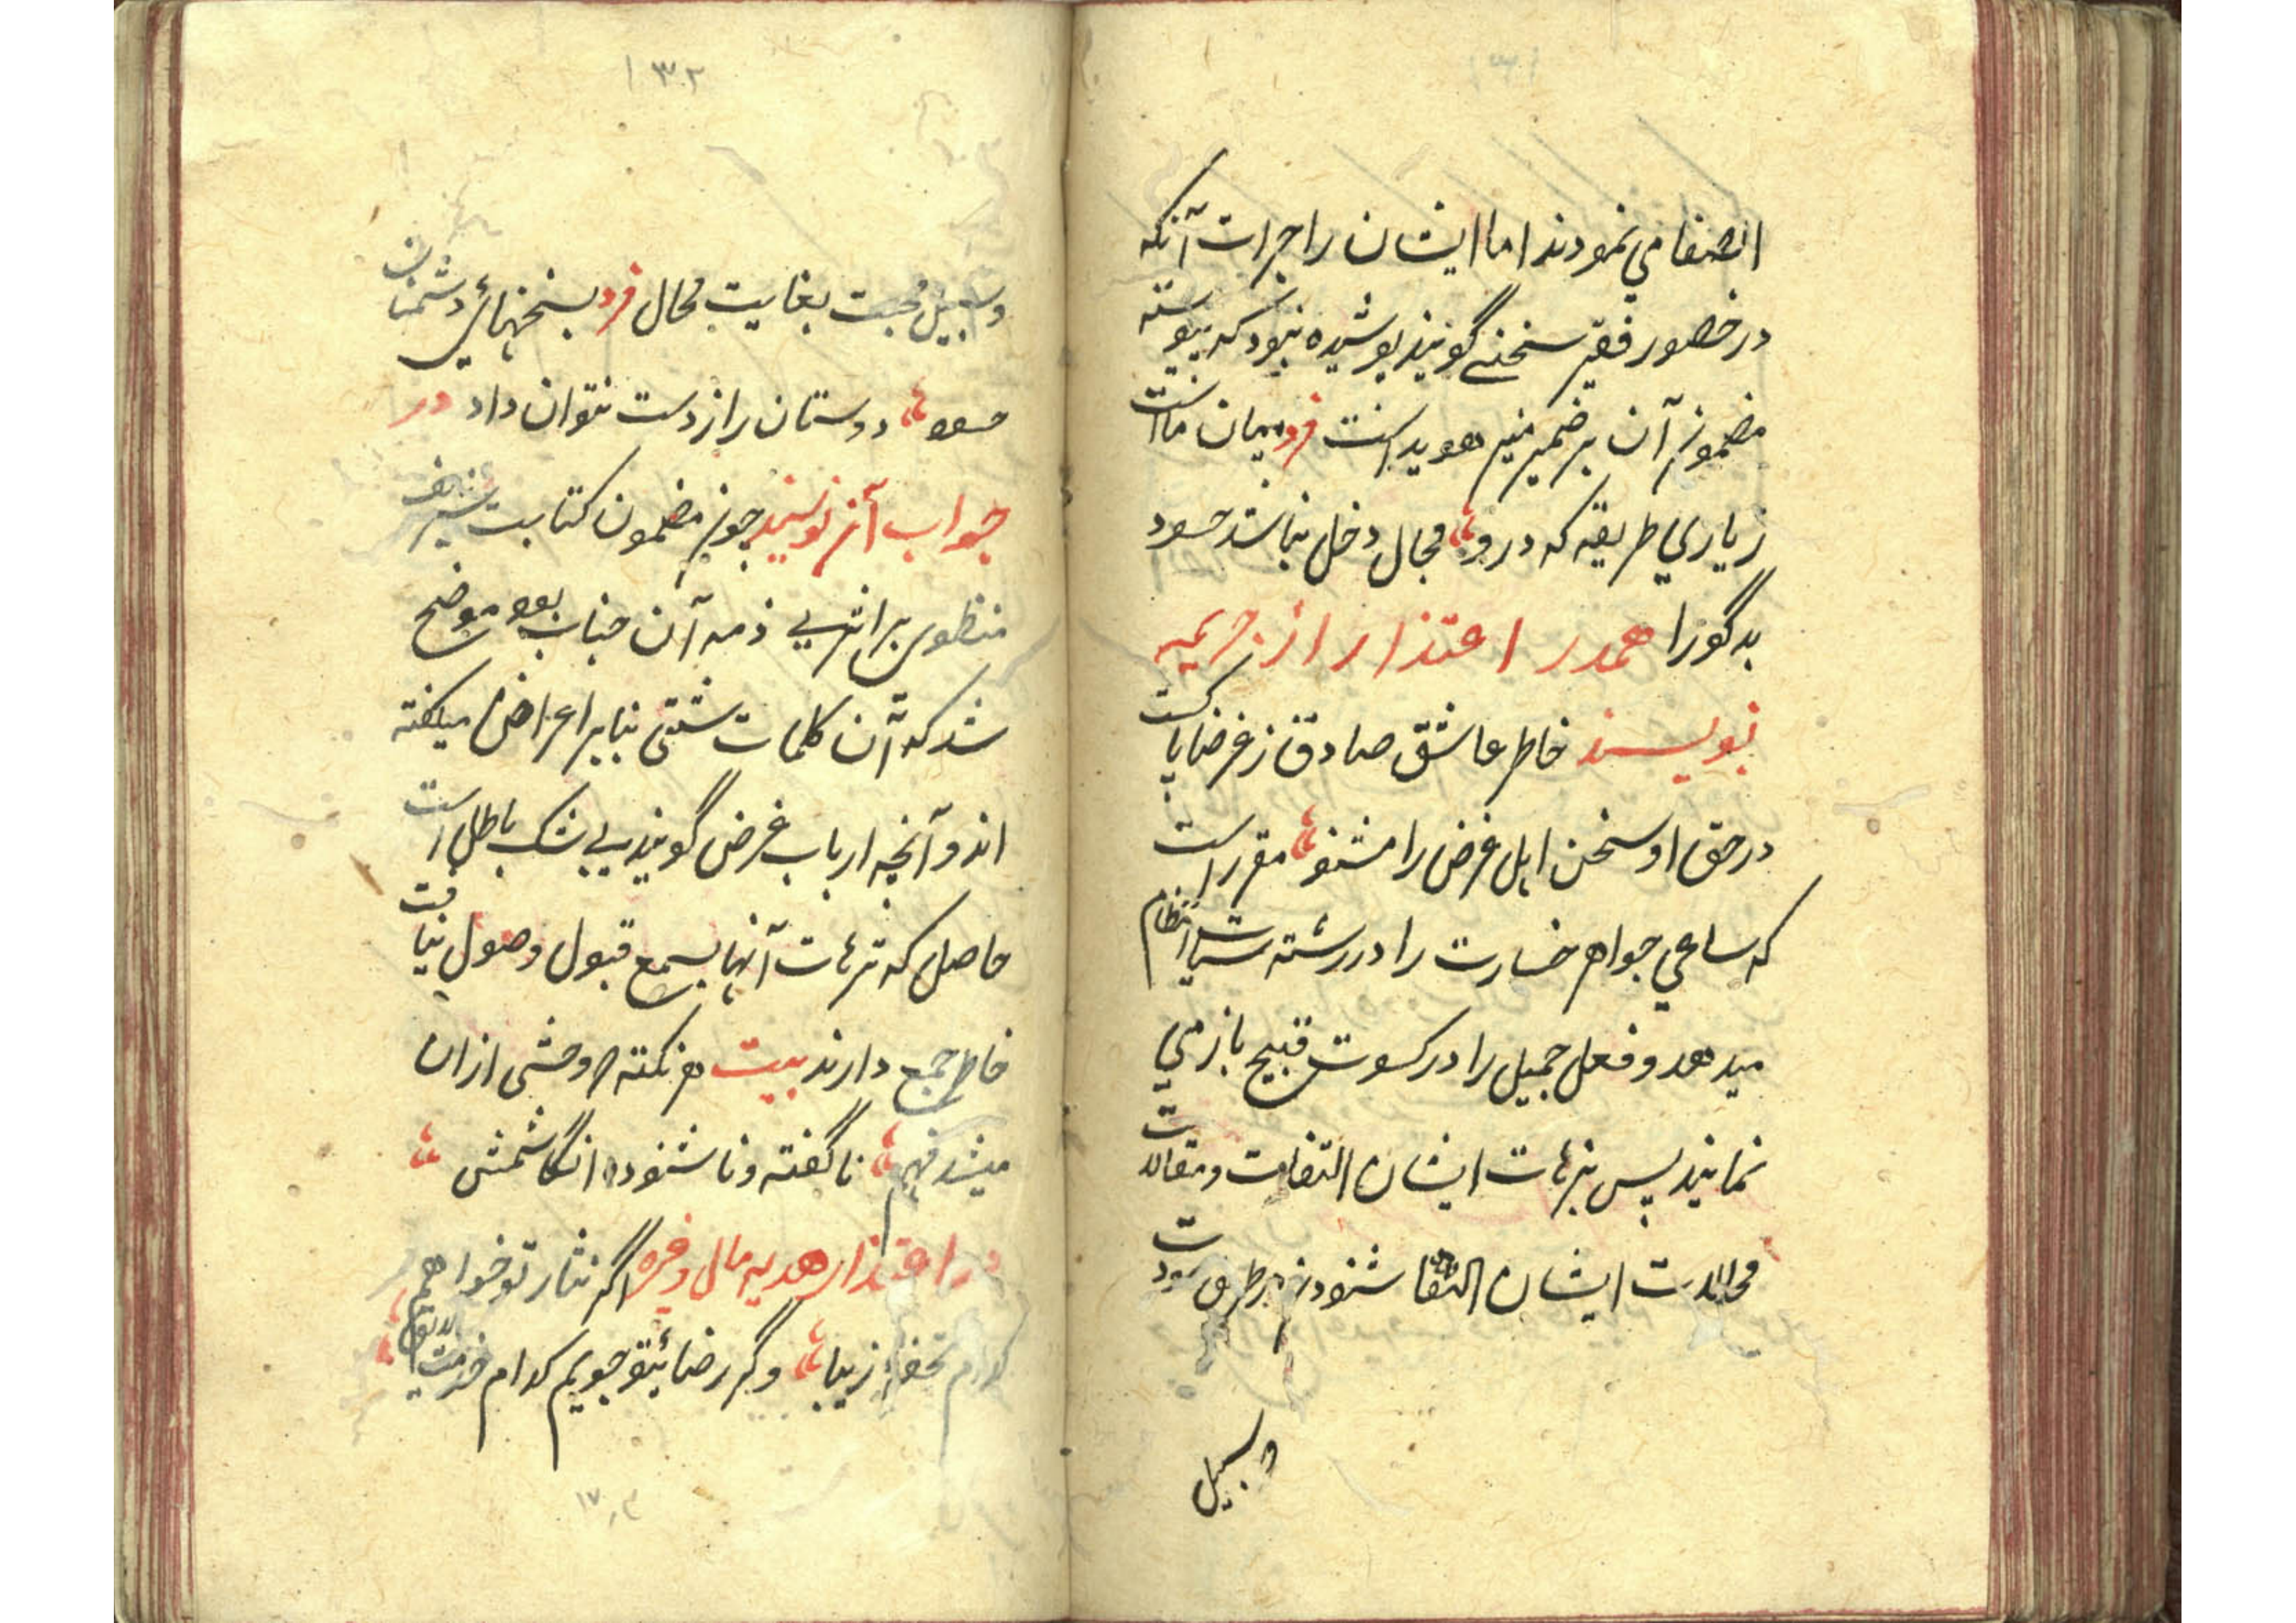 ۱۳۱
انصفا می نمودند اما ایشان را جرات آنکه
در حضور فقیر سخنے گویند پوشیده نبود که پیوسته
مضمون آن بر ضمیر منیر هویداست فرد میان ماست
ز یاری طریقه که درو مجال دخل نباشد حسود
بدگو را همدر اعتذار از جریمه
نویسند خاطر عاشق صادق ز غرضها پاکست
در حق او سخن اهل غرض را مشنو مقرر است
که ساعی جواهر خسارت را در رشته انتظام
میدهد و فعل جمیل را در کسوت قبیح باز می
نمایند پس ترهات ایشان التفات و مقالات
محالات ایشان شنودن بر طریق
و سبیل
۱۳۲
و سبیل محبت بغایت محال فرد بسخنهائی دشمنان
حسود دوستان را از دست نتوان داد در
جواب آن نویسند چون مضمون کتابت شریف
منظوی بر ذمه آن جناب بود موضح
شد که آن کلمات شتی بنابر اعراض میگفته
اند و آنچه ارباب غرض گویند بی شک باطل است
حاصل که ترهات آنها بسمع قبول وصول نیافت
خاطر جمع دارند بیت هر نکته که وحشی از ان
میشد فهم ناگفته و ناشنوده انگاشتمش
در اعتذار هدیه مال وغیره اگر نثار تو خواهم
کدام تحفه زیبا وگر رضائتو جویم کدام خدمت لایق